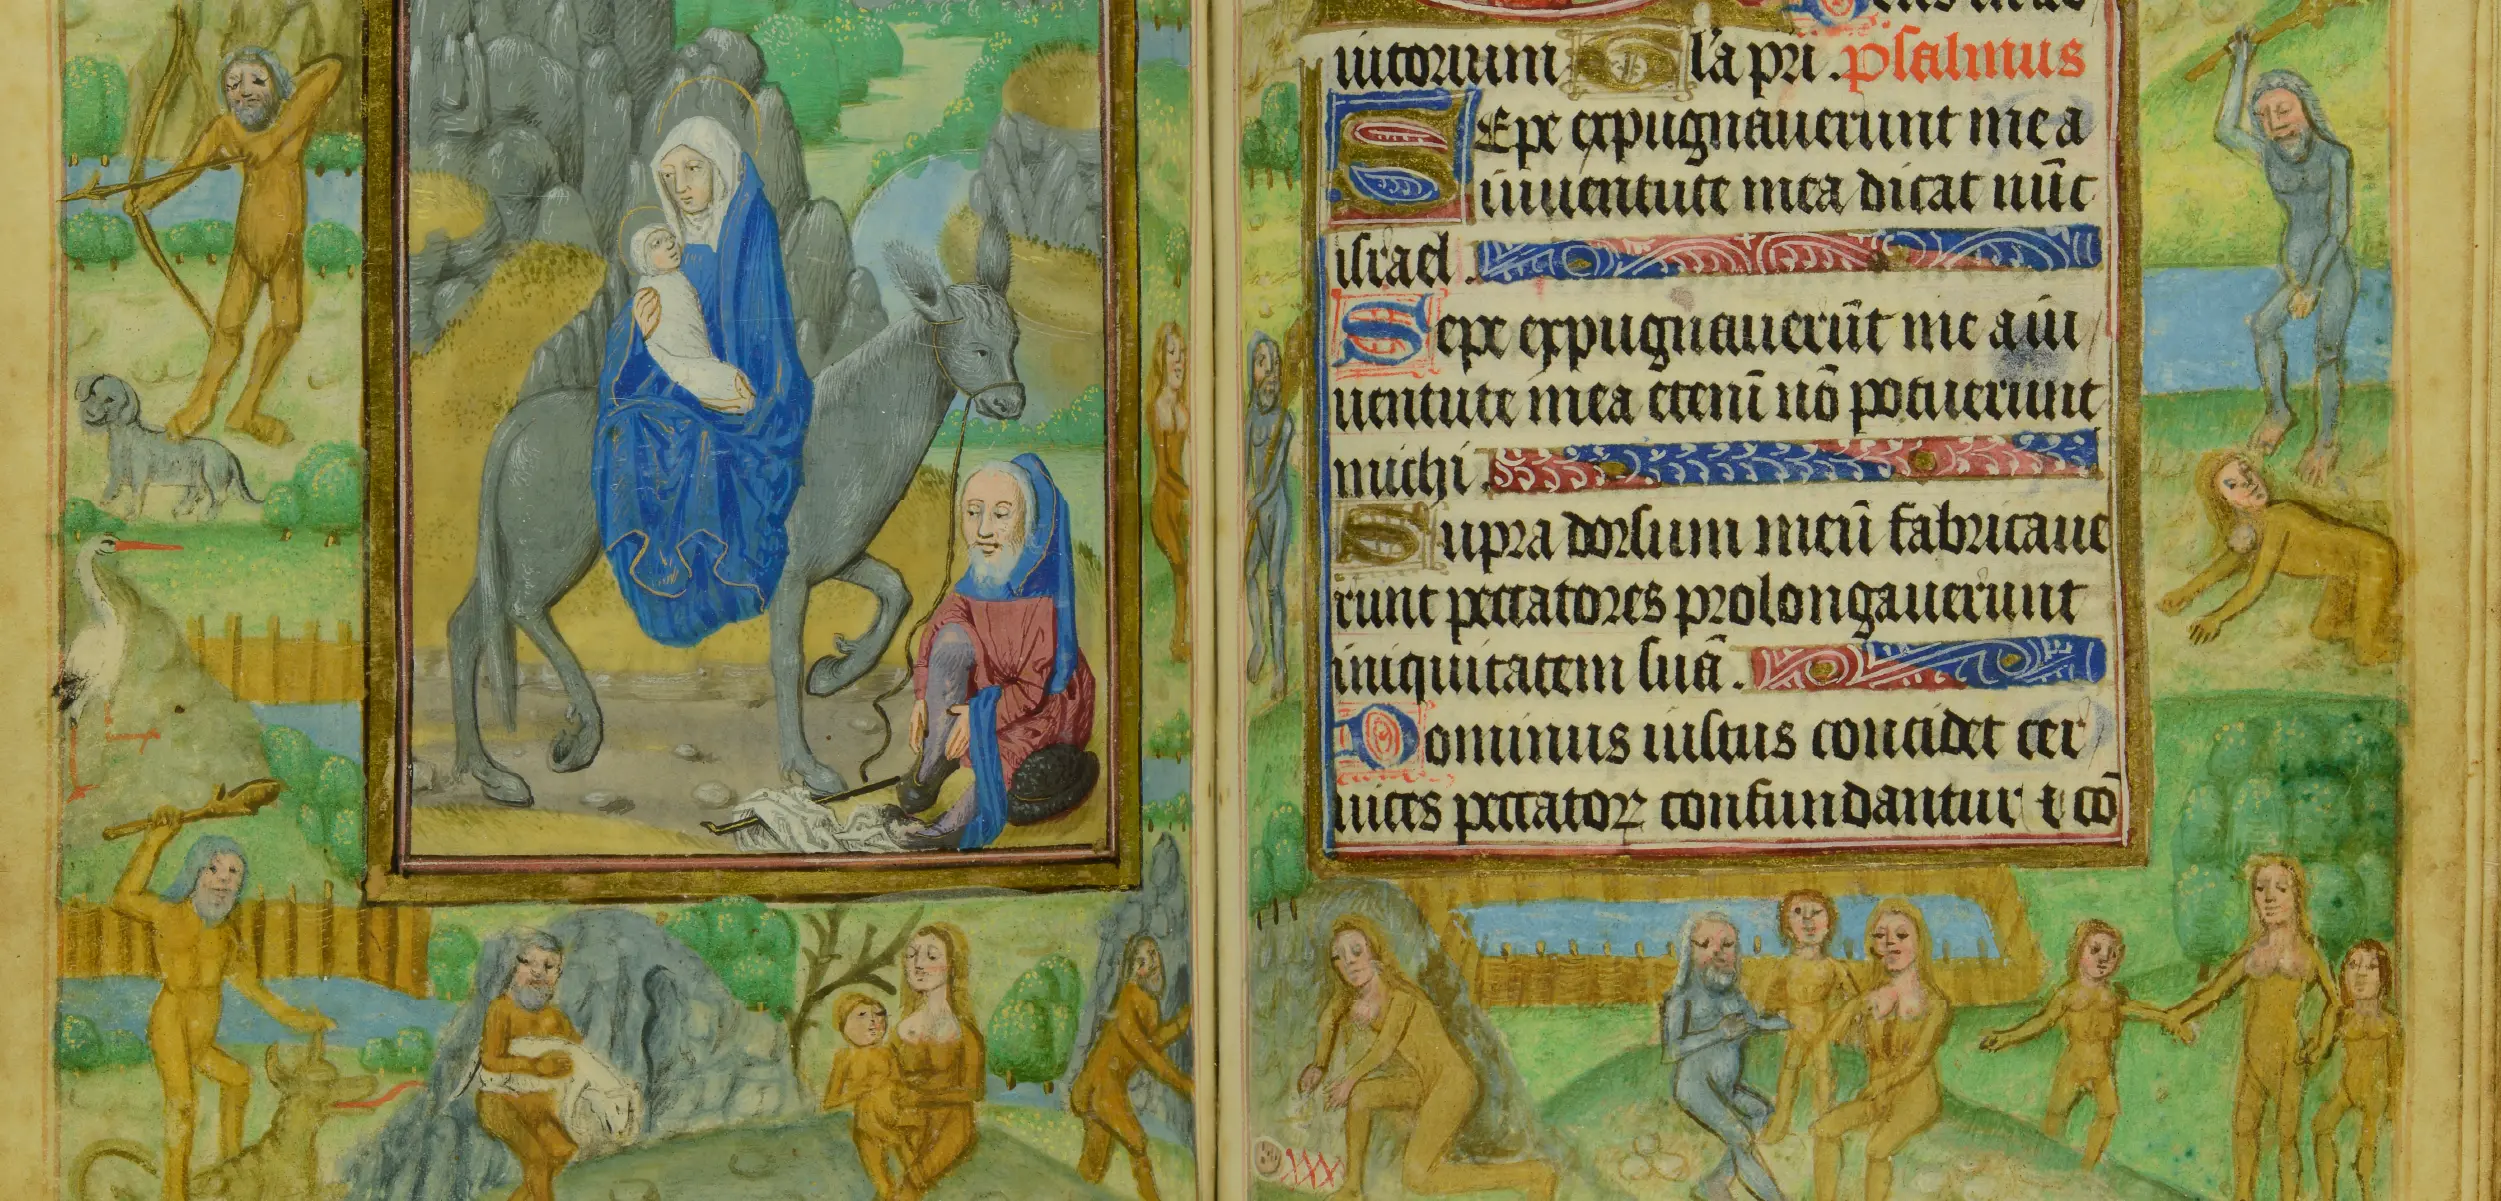 iutorium Gl'a pri. Psalmus
SEpe expugnauerunt me a
iuuentute mea dicat nūc
israel.
Sepe expugnauerūt me a iu
uentute mea etenī nō potuerunt
michi.
Supra dorsum meū fabricaue
runt peccatores prolongauerunt
iniquitatem suā.
Dominus iustus concidet cer
uices peccatorꝝ confundantur ⁊ cō